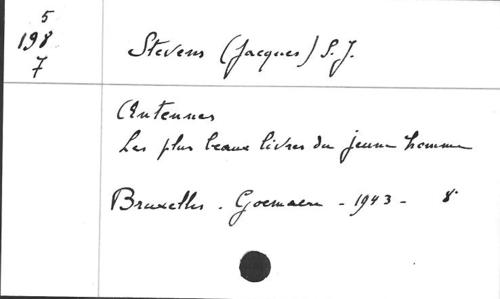 5
198
7
Stevens (Jacques) S.J.
Antennes
Les plus beaux livres du jeune homme
Bruxelles. Goemaere - 1943 - 8°